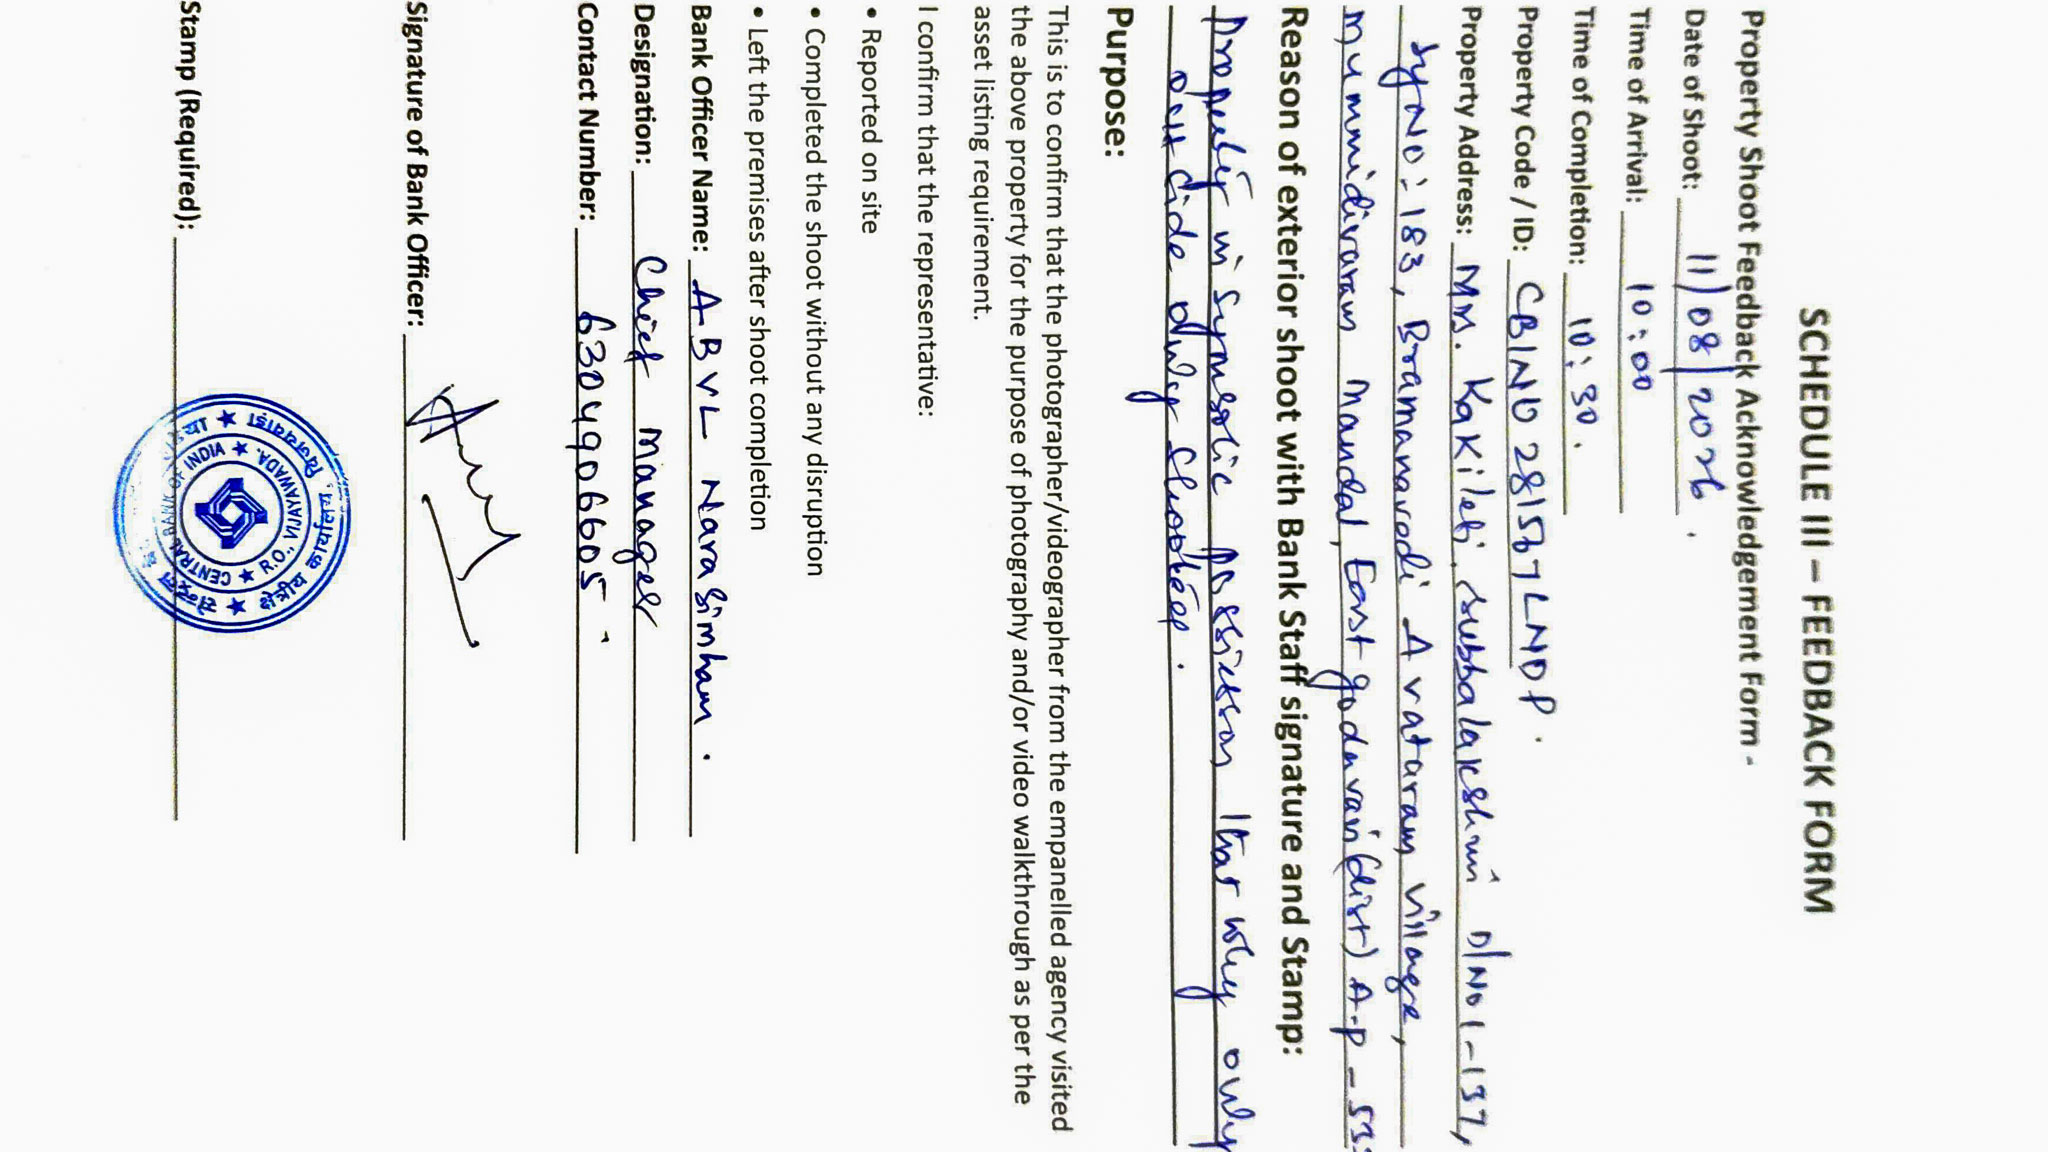 SCHEDULE III – FEEDBACK FORM
Property Shoot Feedback Acknowledgement Form -
Date of Shoot: 11/08/2026.
Time of Arrival: 10:00
Time of Completion: 10:30.
Property Code / ID: CBIND281567LNDP.
Property Address: MM. Kakileti. Subbalakshmi D/No 1-137,
SyNO: 183, Bramanavadi Avataram village,
mummidivaram Mandal, East godavari (dist) A.P - 53
Reason of exterior shoot with Bank Staff signature and Stamp:
Property in Symsolic Possission that why only
out side only shooted.
Purpose:
This is to confirm that the photographer/videographer from the empanelled agency visited
the above property for the purpose of photography and/or video walkthrough as per the
asset listing requirement.
I confirm that the representative:
• Reported on site
• Completed the shoot without any disruption
• Left the premises after shoot completion
Bank Officer Name: A B V L Narasimham.
Designation: Chief Manager
Contact Number: 6304906605
Signature of Bank Officer:
Stamp (Required):
CENTRAL BANK OF INDIA ★ R.O. VIJAYAWADA. ★
क्षेत्रीय कार्यालय, विजयवाडा ★